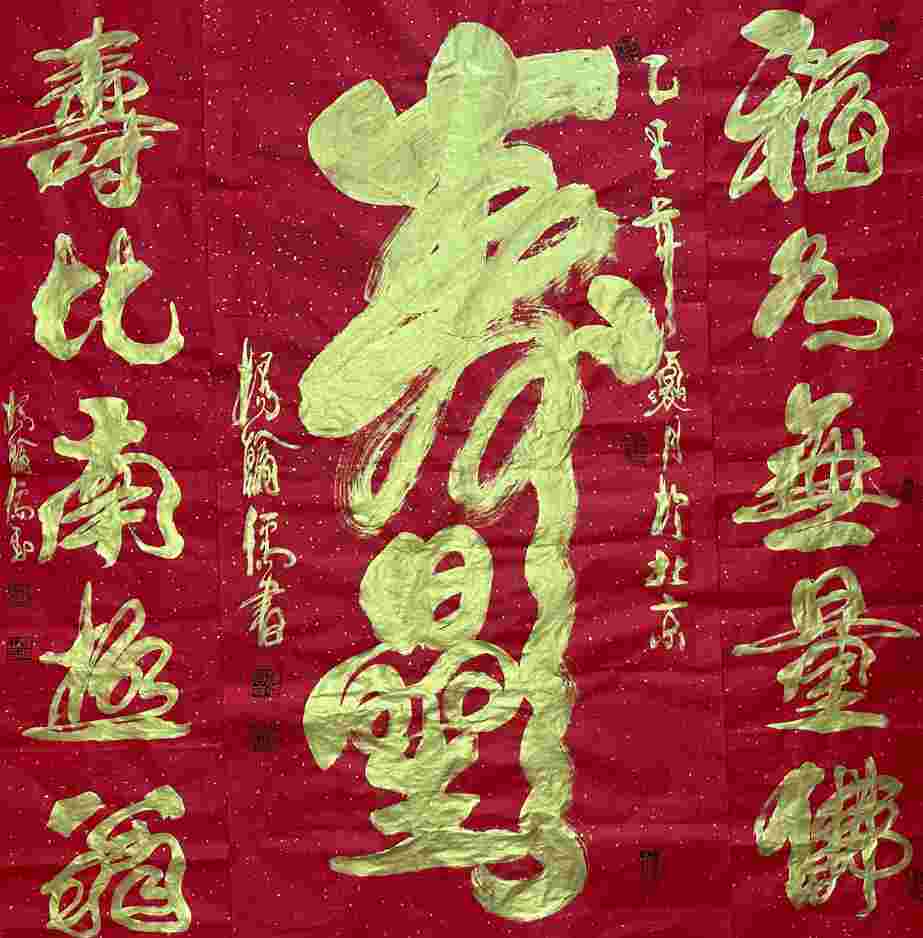 福如無量佛
壽
乙年夏月於北京
楊翰儒書
壽比南極翁
楊翰儒書